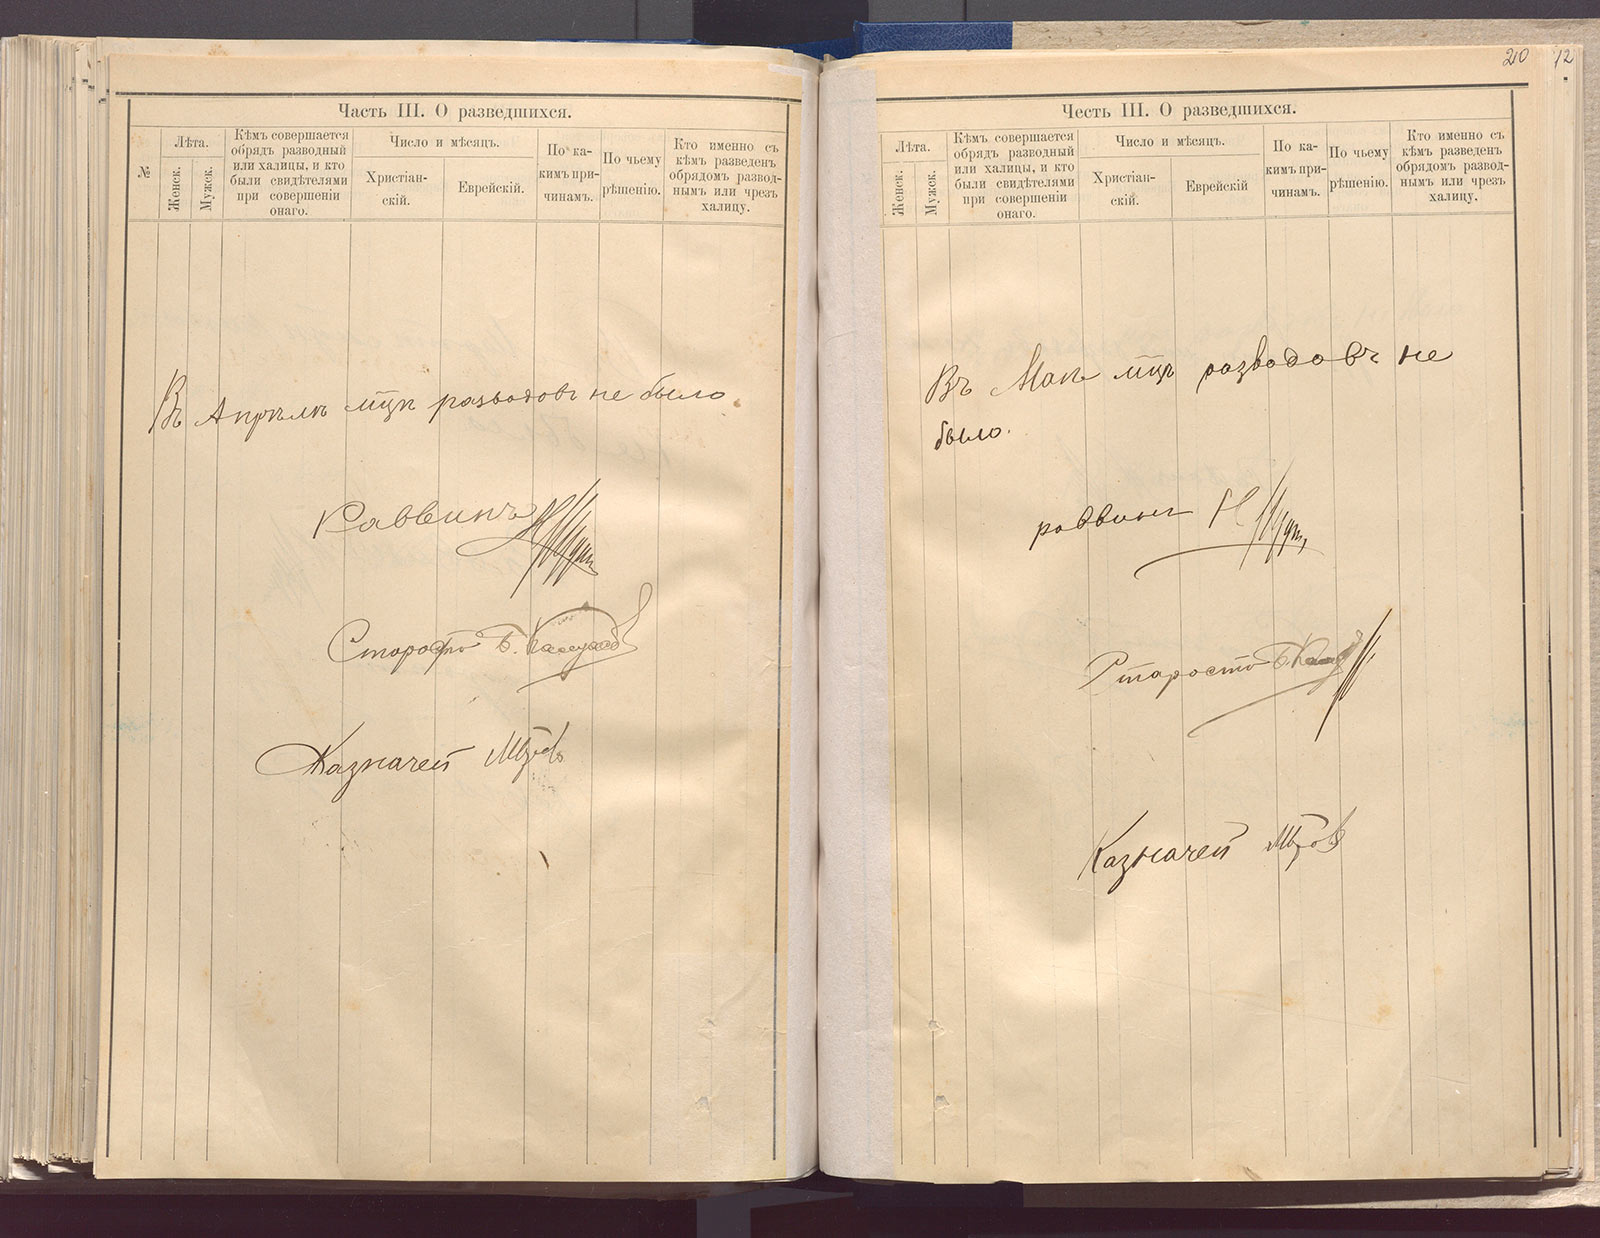 Часть III. О разведшихся.
№
Лѣта.
Женск.
Мужск.
Кѣмъ совершается
обрядъ разводный
или халицы, и кто
были свидѣтелями
при совершеніи
онаго.
Число и мѣсяцъ.
Христіан-
скій.
Еврейскій.
По ка-
кимъ при-
чинамъ.
По чьему
рѣшенію.
Кто именно съ
кѣмъ разведенъ
обрядомъ развод-
нымъ или чрезъ
халицу.
Въ Апрѣлѣ мцѣ разводовъ не было
Раввинъ
Староста Б.
Казначей
210
12
Честь III. О разведшихся.
Лѣта.
Женск.
Мужск.
Кѣмъ совершается
обрядъ разводный
или халицы, и кто
были свидѣтелями
при совершеніи
онаго.
Число и мѣсяцъ.
Христіан-
скій.
Еврейскій
По ка-
кимъ при-
чинамъ.
По чьему
рѣшенію.
Кто именно съ
кѣмъ разведенъ
обрядомъ развод-
нымъ или чрезъ
халицу.
Въ Маѣ мцѣ разводовъ не
было.
раввинъ
Староста Б.
Казначей